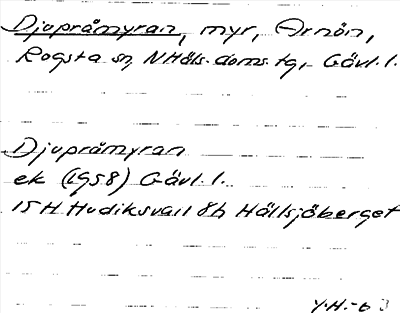 Djupråmyran, myr, Arnön,
Rogsta sn, NHäls. doms. tg, Gävl. l.
Djupråmyran
ek (1958) Gävl. l.
15H Hudiksvall 8b Hällsjöberget
Y.H.-63